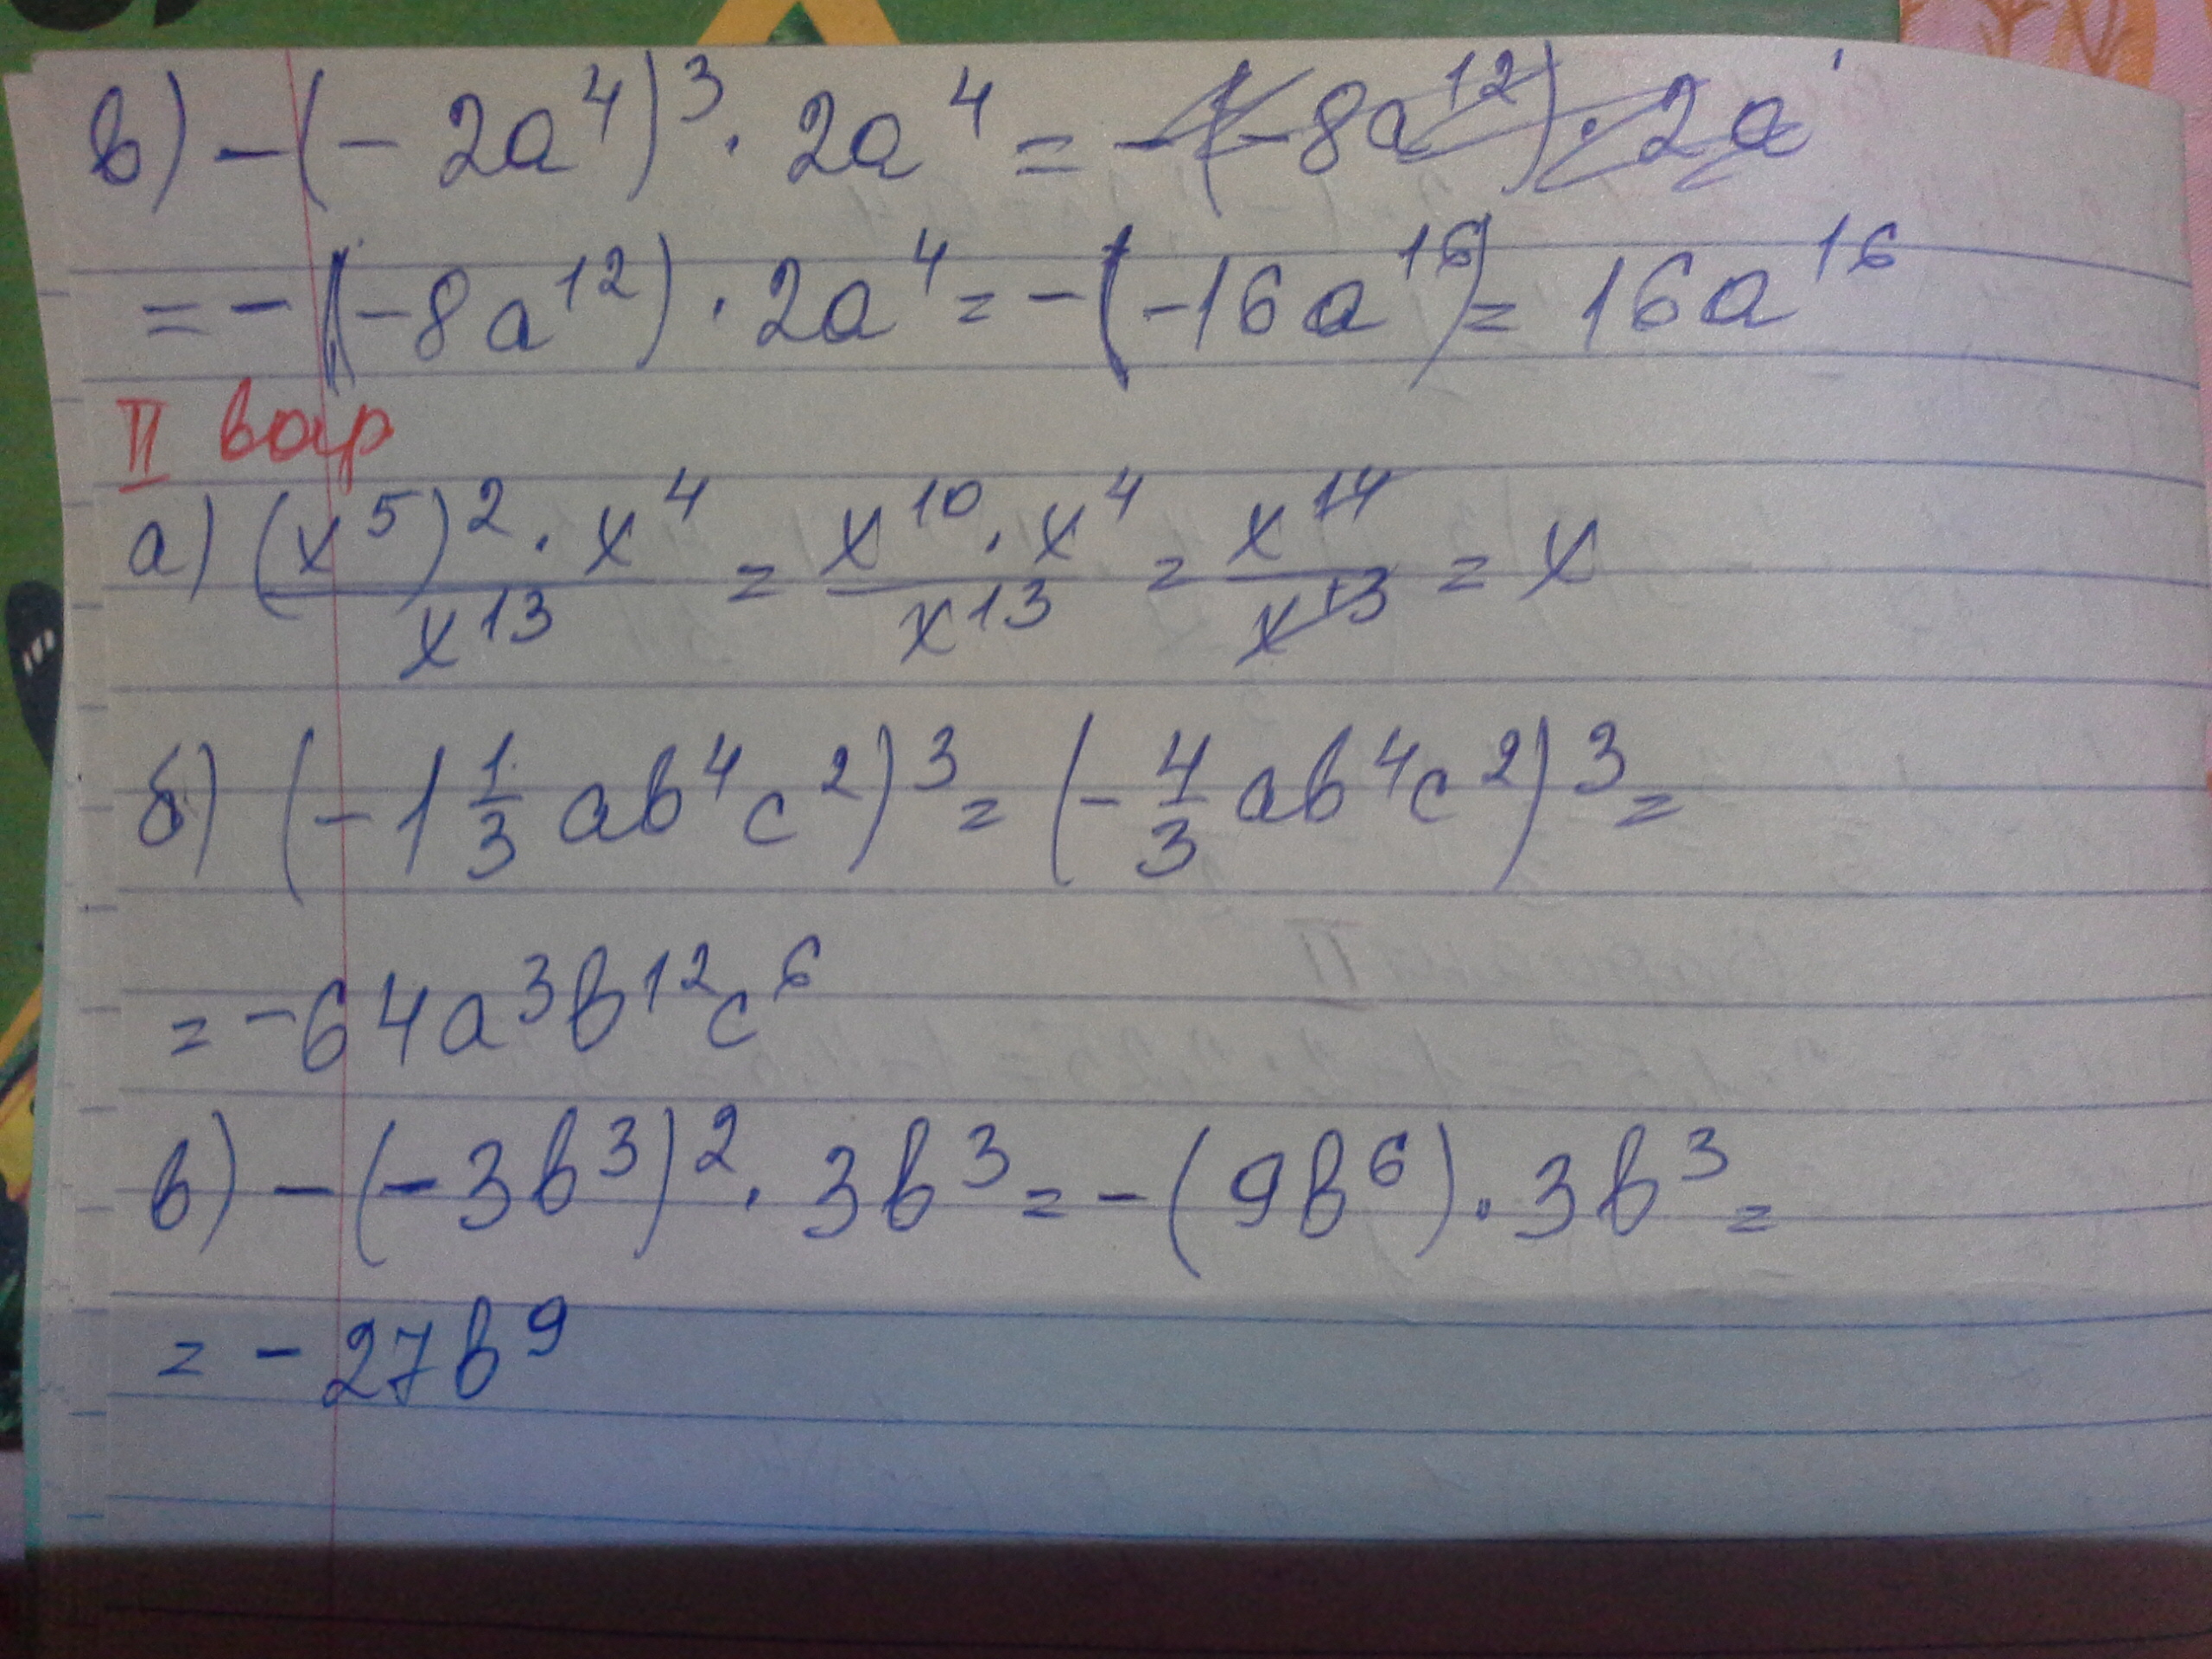 в) -(-2a⁴)³ · 2a⁴ = -(-8a¹²) · 2a
= -(-8a¹²) · 2a⁴ = -(-16a¹⁶) = 16a¹⁶
II вар
а) (x⁵)² · x⁴ / x¹³ = x¹⁰ · x⁴ / x¹³ = x¹⁴ / x¹³ = x
б) (-1 1/3 ab⁴c²)³ = (-4/3 ab⁴c²)³ =
= -64a³b¹²c⁶
в) -(-3b³)² · 3b³ = -(9b⁶) · 3b³ =
= -27b⁹